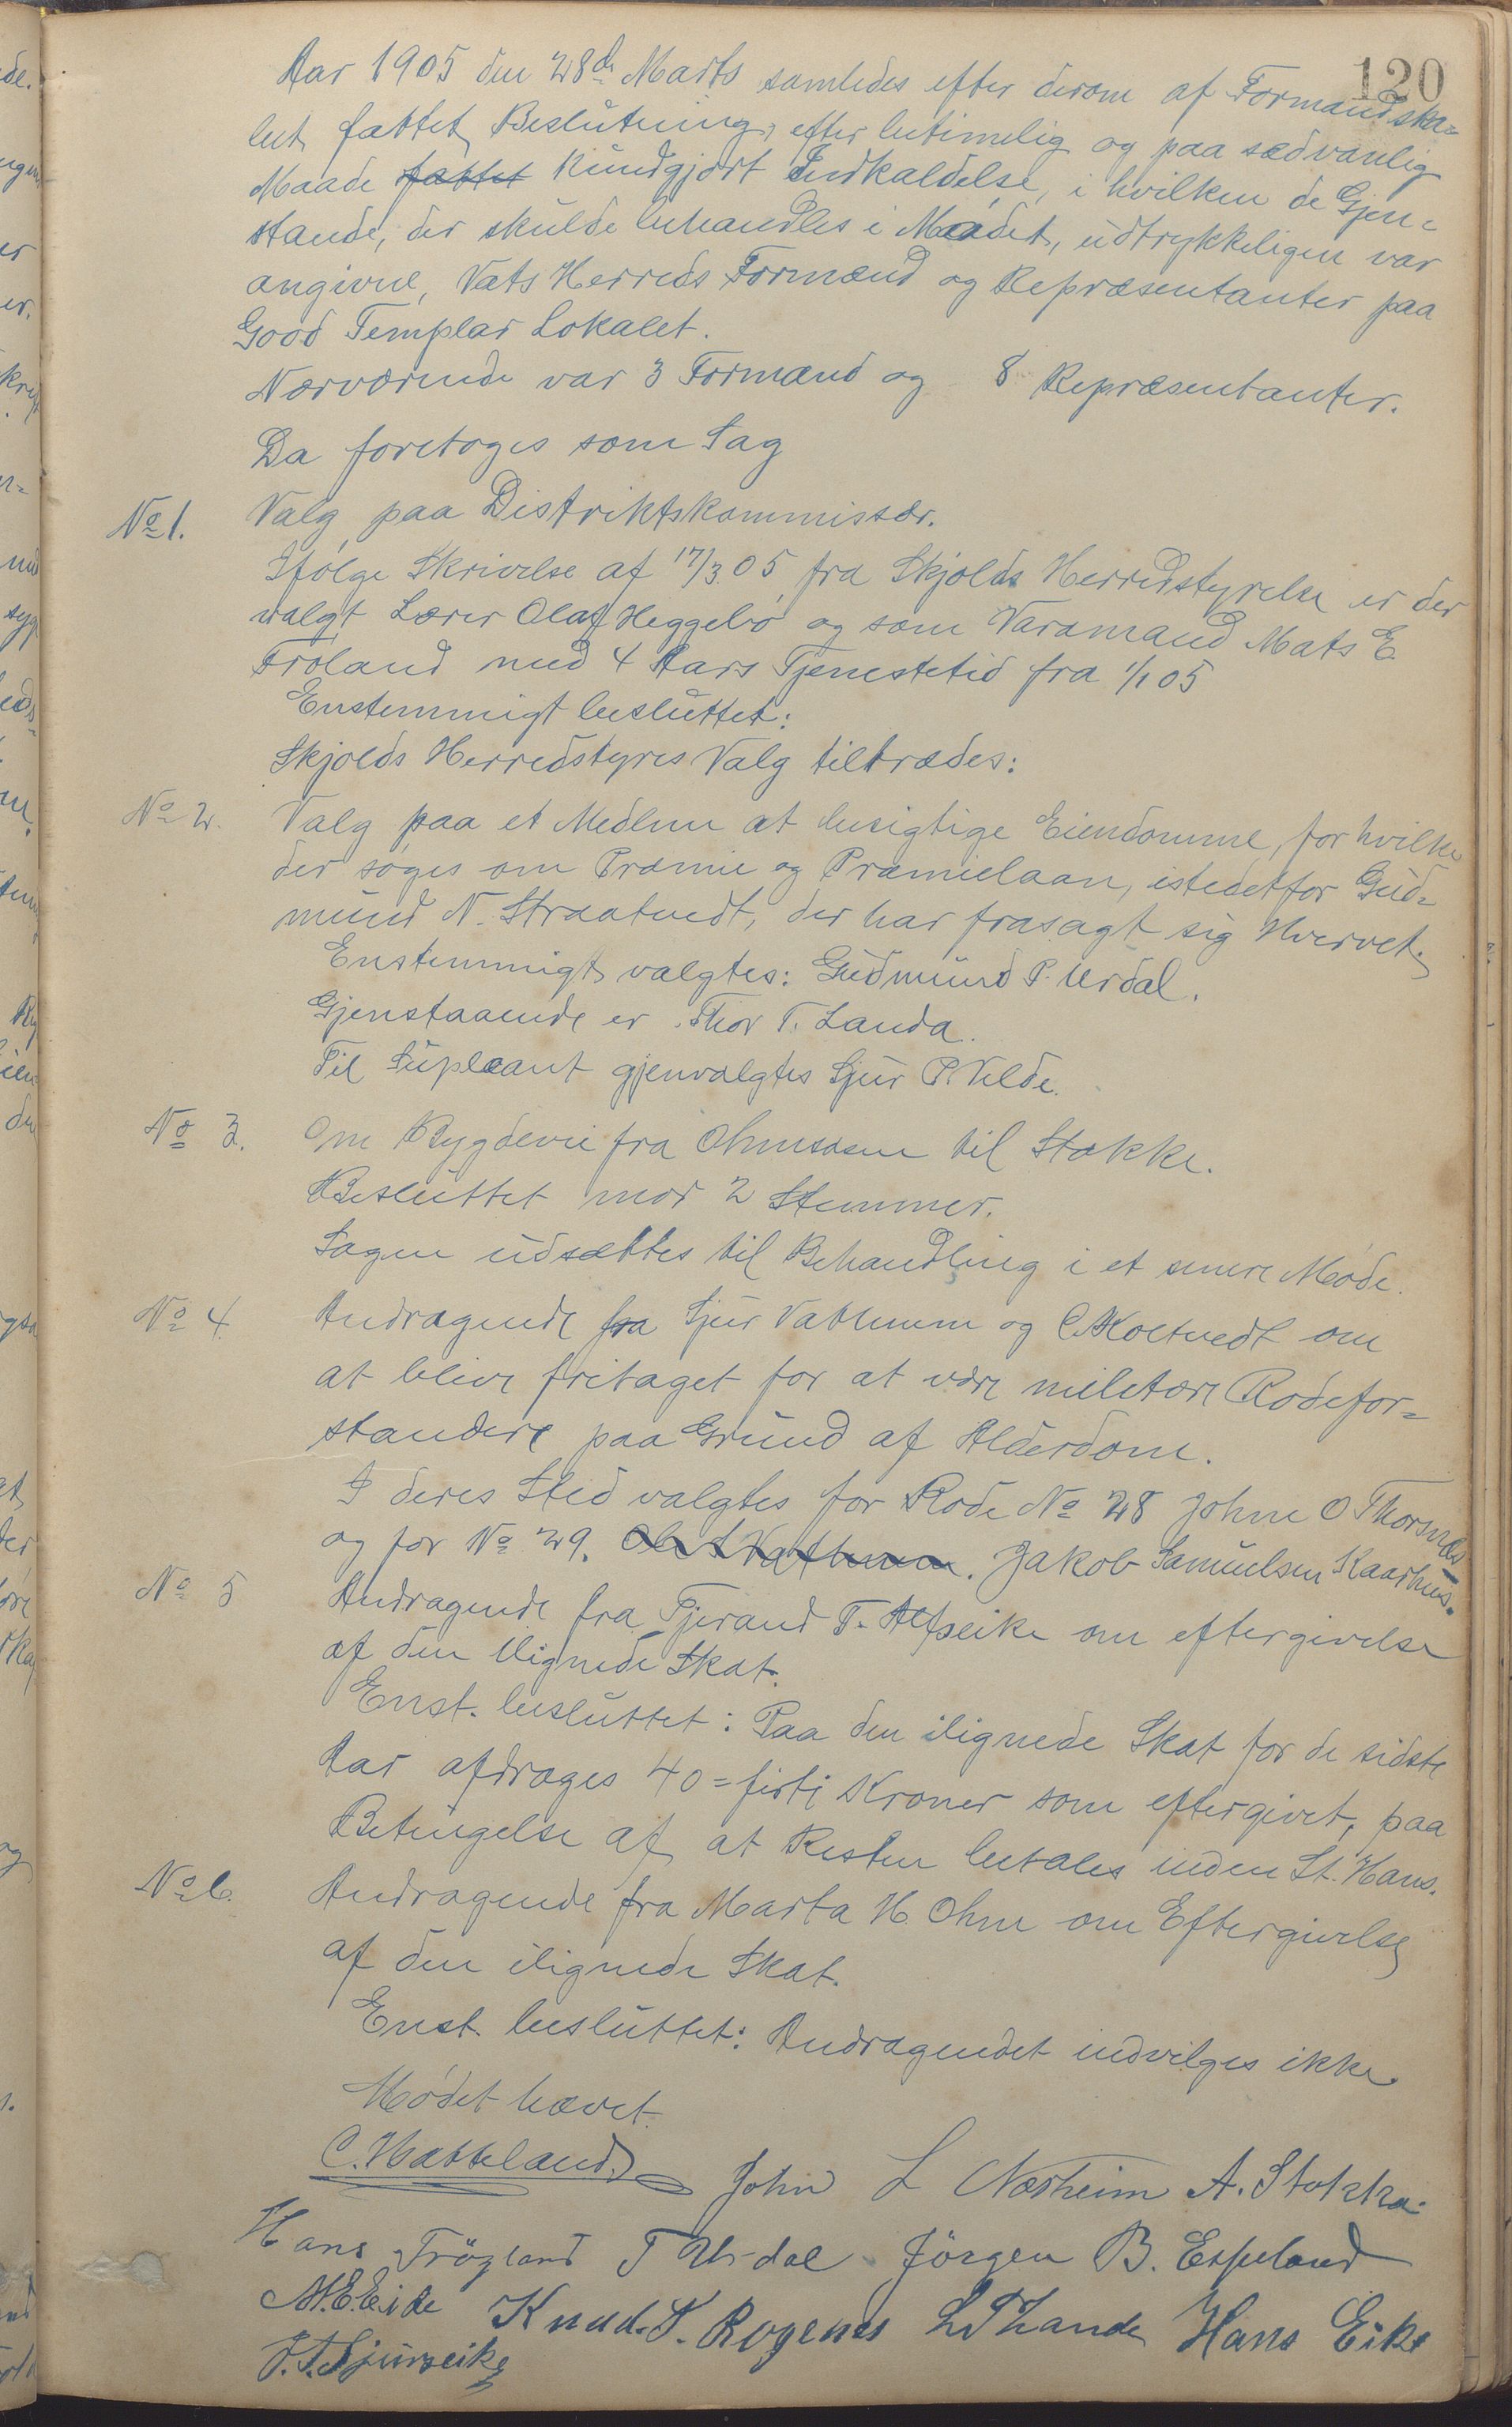 120
Aar 1905 den 28de Marts samledes efter derom af Formandska=
bet fattet Beslutning, efter betimelig og paa sædvanlig
Maade fattet kundgjort Indkaldelse, i hvilken de Gjen=
stande, der skulde behandles i Mødet, udtrykkeligen var
angivne, Vats Herreds Formænd og Repræsentanter paa
Good Templar Lokalet.
Nærværende var 3 Formænd og 8 Repræsentanter.
Da foretoges som Sag
No 1. Valg paa Distriktskommissær.
Ifølge Skrivelse af 17/3 05 fra Skjolds Herredstyrelse er der
valgt Lærer Olaf Heggebø og som Varamand Mats E.
Frøland med 4 Aars Tjenestetid fra 1/1 05
Enstemmigt besluttet:
Skjolds Herredstyres Valg tiltrædes:
No 2. Valg paa et Medlem at besigtige Eiendomme, for hvilke
der søges om Præmie og Præmielaan, istedetfor Gud=
mund N. Straatvedt, der har frasagt sig Hvervet.
Enstemmigt valgtes: Gudmund P. Urdal.
Gjenstaaende er Thor T. Landa.
Til Supleant gjenvalgtes Sjur P. Velde.
No 3. Om Bygdevei fra Ohmsosen til Stakke.
Besluttet mod 2 Stemmer.
Sagen udsættes til Behandling i et senere Møde.
No 4. Andragende fra Sjur Vathnem og C. Koltvedt om
at blive fritaget for at være miletære Rodefor=
standere paa Grund af Alderdom.
I deres Sted valgtes for Rode No 28 Johne O Thorsnæs
og for No 29. Ole S Vathnem. Jakob Samuelsen Kaarhus.
No 5 Andragende fra Tjerand T. Alfseike om eftergivelse
af den ilignede Skat.
Enst. besluttet: Paa den ilignede Skat for de sidste
Aar afdrages 40 = firti Kroner som eftergivet, paa
Betingelse af at Resten betales inden St. Hans.
No 6. Andragende fra Marta H. Ohm om Eftergivelse
af den ilignede Skat.
Enst. besluttet: Andragendet indvilges ikke.
Mødet hævet.
C. Hatteland. John L Næsheim A. Stokka.
Hans Frøgland T Urdal Jörgen B. Espeland
M. E. Eide Knud. K. Rogenes L T Lande Hans Eike
J. T. Sjurseike